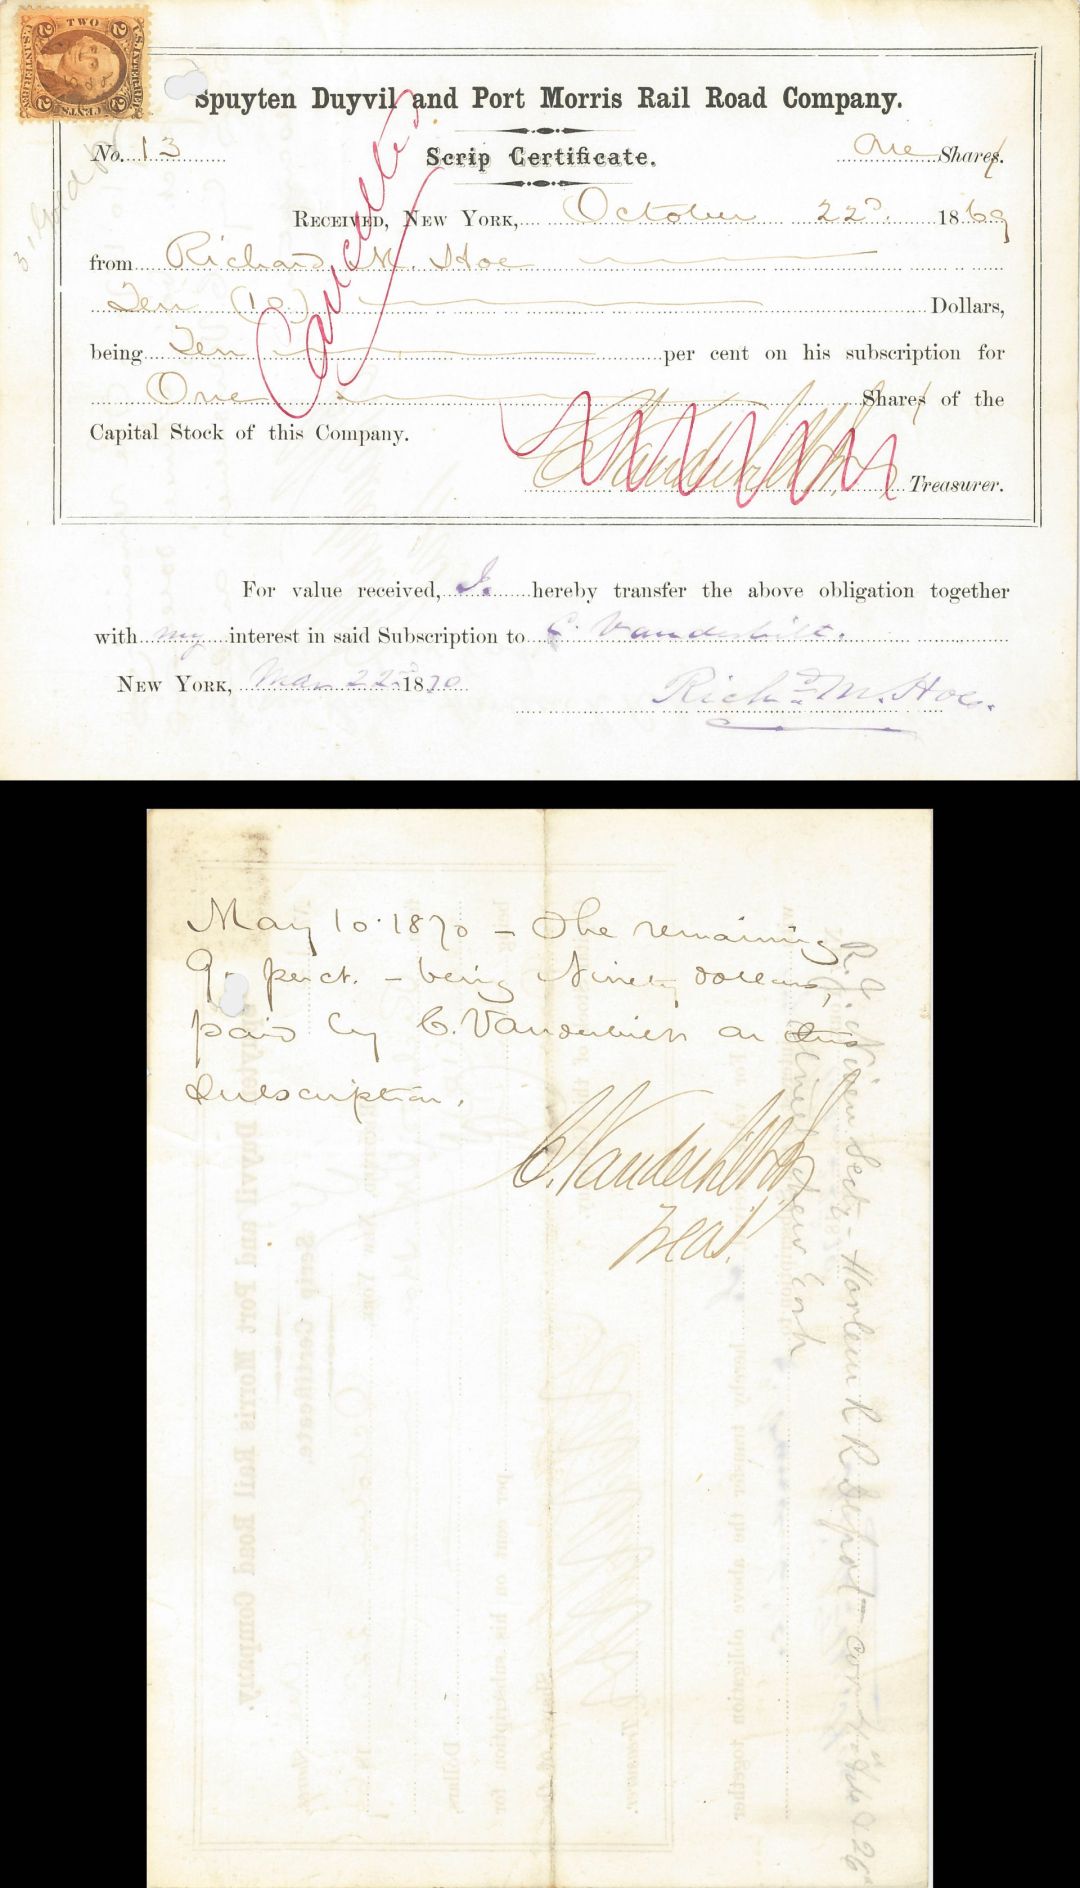 U.S. INTER. REV.
TWO
2 2
2 CENTS 2
Spuyten Duyvil and Port Morris Rail Road Company.
No. 13
Scrip Certificate.
One Shares.
RECEIVED, NEW YORK, October 22d. 1869
from Richard M. Hoe
Ten (10) Dollars,
being Ten per cent on his subscription for
One Shares of the
Capital Stock of this Company.
C. Vanderbilt Jr. Treasurer.
Cancelled.
For value received, I. hereby transfer the above obligation together
with my interest in said Subscription to C. Vanderbilt.
NEW YORK, Mar 22nd 1870
Richd M. Hoe.
May 10. 1870 – The remaining
9. perct. – being Ninety dollars,
paid by C. Vanderbilt on this
Subscription.
C. Vanderbilt Jr
Treas.
Secty – Harlem R R Depot – cor 4th Ave & 26
New York